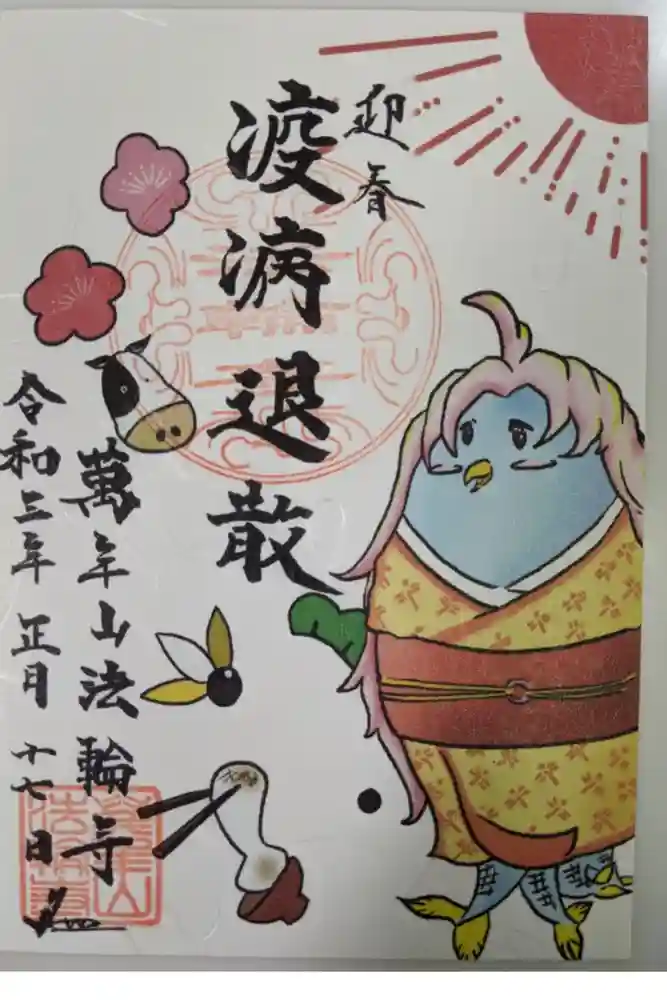 迎春
疫病退散
萬年山法輪寺
令和三年正月十七日